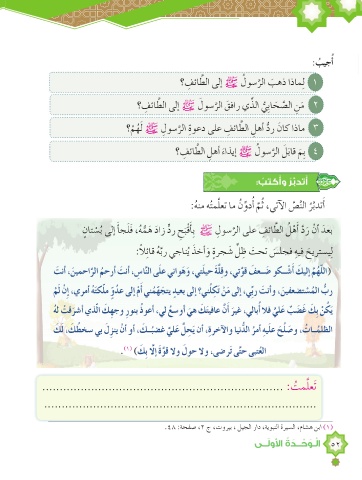 أُجيبُ:
١ لِماذا ذهبَ الرَّسولُ ﷺ إلى الطَّائفِ؟
٢ مَنِ الصَّحابيُّ الَّذي رافقَ الرَّسولَ ﷺ إلى الطَّائفِ؟
٣ ماذا كانَ ردُّ أهلِ الطَّائفِ على دعوةِ الرَّسولِ ﷺ لَهُمْ؟
٤ بِمَ قابَلَ الرَّسولُ ﷺ إيذاءَ أهلِ الطَّائفِ؟
أتدبّر وأكتبُ:
أَتدبَّرُ النَّصَّ الآتي، ثُمَّ أُدوِّنُ ما تعلَّمتُه منهُ:
بعدَ أنْ رَدَّ أَهْلُ الطَّائفِ على الرسولِ ﷺ بِأَقْبَحِ ردٍّ زادَ هَمُّهُ، فَلَجأَ إلَى بُسْتانٍ
لِيستريحَ فيهِ فجلسَ تحتَ ظِلِّ شجرةٍ وأخذَ يُناجي ربَّهُ قائلاً:
(اللَّهُمَّ إليكَ أَشْكو ضَعفَ قوَّتي، وقلَّةَ حيلَتي، وهَواني علَى النَّاسِ، أنتَ أرحمُ الرَّاحمينَ، أنتَ
ربُّ المُستضعَفينَ، وأنتَ ربِّي، إلَى مَنْ تَكِلُني؟ إلَى بعيدٍ يتجَهَّمُني أمْ إلَى عدوٍّ ملَّكتَهُ أمري، إنْ لَمْ
يَكُنْ بكَ غَضَبٌ عَليَّ فلا أُبالي، غيرَ أنَّ عافيتَكَ هيَ أوسعُ لِي، أعوذُ بنورِ وجهِكَ الَّذي أشرقَتْ لهُ
الظلمـاتُ، وصَلُحَ عليْهِ أمرُ الدُّنيا والآخرةِ، أن يَحِلَّ عَليَّ غضبُـكَ، أو أنْ ينزِلَ بي سخطُكَ، لكَ
العُتبى حتَّى تَرضى، ولا حولَ ولا قوَّةَ إلَّا بكَ) (١).
تعلَّمتُ:
(١) ابن هشام، السيرة النبوية، دار الجيل، بيروت، ج ٢، صفحة: ٤٨.
٥٢ الـوَحْـدةُ الأولـى